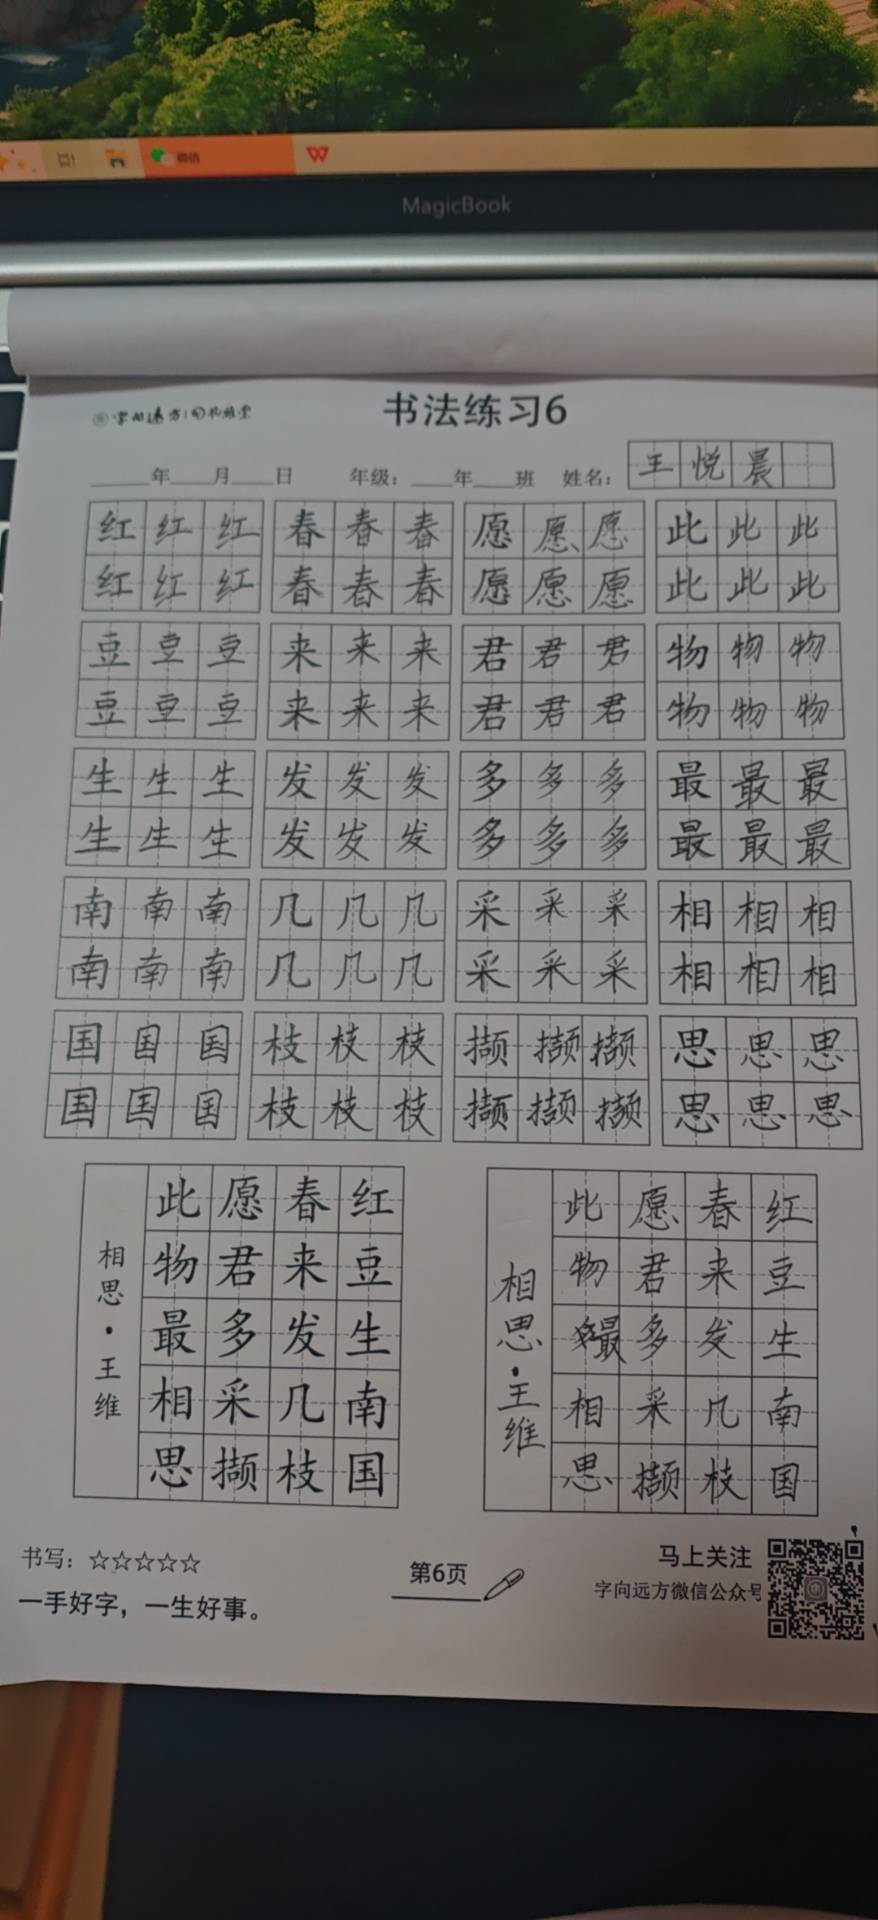 微信
MagicBook
书法练习6
年 月 日 年级： 年 班 姓名： 王悦晨
红红红 春春春 愿愿愿 此此此
红红红 春春春 愿愿愿 此此此
豆豆豆 来来来 君君君 物物物
豆豆豆 来来来 君君君 物物物
生生生 发发发 多多多 最最最
生生生 发发发 多多多 最最最
南南南 几几几 采采采 相相相
南南南 几几几 采采采 相相相
国国国 枝枝枝 撷撷撷 思思思
国国国 枝枝枝 撷撷撷 思思思
红豆生南国
春来发几枝
愿君多采撷
此物最相思
相思·王维
红豆生南国
春来发几枝
愿君多采撷
此物最相思
相思·王维
书写：☆☆☆☆☆
一手好字，一生好事。
第6页
马上关注
字向远方微信公众号